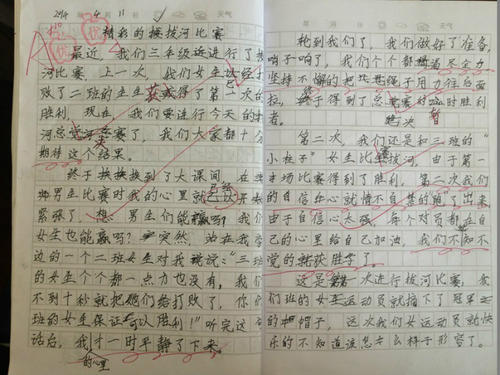 294 4 11
天气
精彩的拔河比赛
最近,我们三年级进行了拔
河比赛,上一次,我们女生已经打
败了二班的女生获得了第一次的
胜利,现在,我们要进行今天的
河总决赛了,我们大家都十分
期待这个结果。
终于挨到了大课间,在
男生比赛时我的心里就已经开始
紧张了,想,男生们能赢吗?我们
女生也能赢吗?突然,站在我
边的一个二班女生对我说:“三班
的女生个个都一点力也没有,我们
不到十秒就把她们给打败了,你们
班的女生保证可以胜利!”听完这
话后,我的心里才一时平静了下来。
天气
轮到我们了,我们做好了准备,
哨子响了,我们个个都尽全力
坚持不懈的把绳子用力往后面
拉,终于得到了总决赛的胜利
者。
第二次,我们还是和三班的“
小柱子”女生比拔河,由于第一
场比赛得到了胜利,第二次我们
的自信心就情不自禁的跑了出来
由于自信心太强,每个对员都在自
己的心里给自己加油,我们不知不
觉的就获胜了。
这是第一次进行拔河比赛,我
们班的女生运动员就摘下了冠军
的帽子,这次我们女运动员就快
乐的不知道该怎么样子形容了。